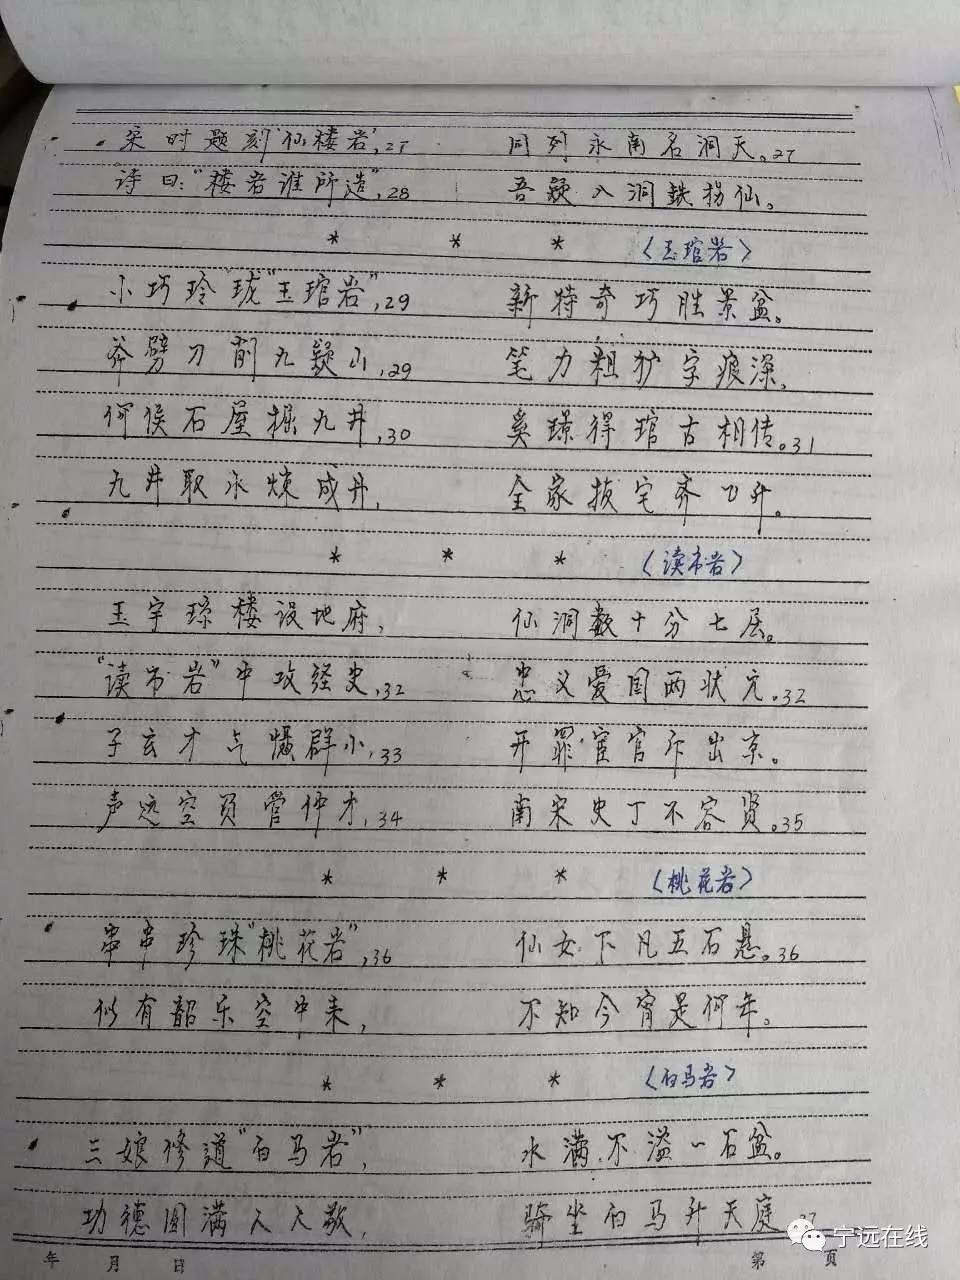 宋时题刻“仙楼岩”,27 同列永南名洞天。27
诗曰:“楼岩谁所造”,28 吾疑入洞铁拐仙。
* * * 〈玉琯岩〉
小巧玲珑“玉琯岩”,29 新特奇巧胜景盆。
斧劈刀削九疑山,29 笔力粗犷字痕深,
何侯石屋掘九井,30 奚璟得琯古相传。31
九井取水煉成丹, 全家拔宅齐飞升。
* * * 〈读书岩〉
玉宇琼楼设地府, 仙洞数十分七层。
“读书岩”中攻经史,32 忠义爱国两状元。32
子玄才气慑群小,33 开罪宦官斥出京。
声远空负管仲才,34 南宋史丁不容贤。35
* * * 〈桃花岩〉
串串珍珠“桃花岩”,36 仙女下凡五石悬。36
似有韶乐空中来, 不知今宵是何年。
* * * 〈白马岩〉
三娘修道“白马岩”, 水满不溢一石盆。
功德圆满人人敬, 骑坐白马升天庭 37
年 月 日 第 页
宁远在线